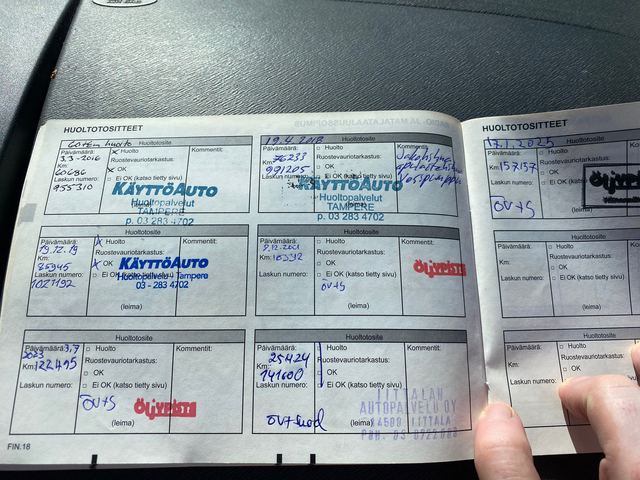 HUOLTOTOSITTEET
60tkm huolto
Huoltotosite
Päivämäärä:
3.3-2016
Km:
60686
Laskun numero:
955310
x Huolto
Ruostevauriotarkastus:
x OK
□ Ei OK (katso tietty sivu)
Kommentit:
KÄYTTÖAUTO
Huoltopalvelut
TAMPERE
p. 03 283 4702
19.4.2018
Huoltotosite
Päivämäärä:
Km: 76233
991205
Laskun numero:
□ Huolto
Ruostevauriotarkastus:
□ OK
Kommentit:
KÄYTTÖAUTO
Huoltopalvelut
TAMPERE
p. 03 283 4702
Huoltotosite
Päivämäärä:
19.12.19
Km:
85945
Laskun numero:
1027192
x Huolto
Ruostevauriotarkastus:
x OK
□ Ei OK (katso tietty sivu)
Kommentit:
KÄYTTÖAUTO
Huoltopalvelu Tampere
03 - 283 4702
(leima)
Huoltotosite
Päivämäärä:
Km:
Laskun numero:
□ Huolto
Ruostevauriotarkastus:
□ OK
□ Ei OK (katso tietty sivu)
öv+s
Kommentit:
ÖLJYPISTE
(leima)
Huoltotosite
Päivämäärä: 3,7
2023
Km: 122495
Laskun numero:
□ Huolto
Ruostevauriotarkastus:
□ OK
□ Ei OK (katso tietty sivu)
Kommentit:
ÖV+S
ÖLJYPISTE
(leima)
Huoltotosite
Päivämäärä:
25424
Km:
141600
Laskun numero:
□ Huolto
Ruostevauriotarkastus:
□ OK
□ Ei OK (katso tietty sivu)
Kommentit:
öv+suod
(leima)
IITTALAN
AUTOPALVELU OY
14500 IITTALA
FIN.18
HUOLTOTOSITTEET
17.1.2025
Huoltotosite
Päivämäärä:
Km: 157157
Laskun numero:
□ Huolto
Ruostevauriotarkastus:
□ OK
□ Ei OK
ÖV+S
Huoltotosite
Päivämäärä:
Km:
Laskun numero:
□ Huolto
Ruostevauriotarkastus:
□ OK
□ Ei OK (katso tietty sivu)
(leima)
Huoltotosite
Päivämäärä:
Km:
Laskun numero:
□ Huolto
Ruostevauriotarkastus:
□ OK